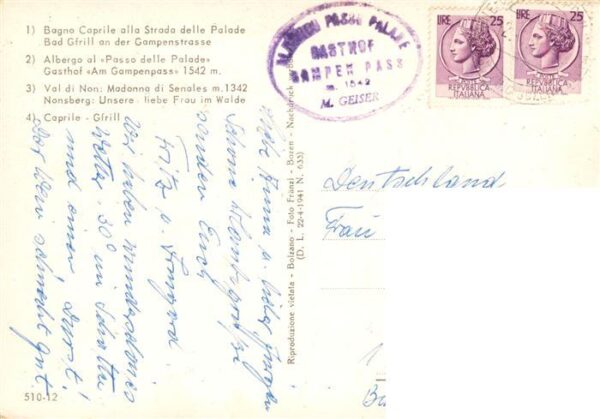 1) Bagno Caprile alla Strada delle Palade
Bad Gfrill an der Gampenstrasse
2) Albergo al «Passo delle Palade»
Gasthof «Am Gampenpass» 1542 m.
3) Val di Non: Madonna di Senales m.1342
Nonsberg: Unsere liebe Frau im Walde
4) Caprile - Gfrill
ALBERGO PASSO PALADE
GASTHOF
GAMPEN PASS
m. 1542
M. GEISER
LIRE 25
REPVBBLICA
ITALIANA
LIRE 25
REPVBBLICA
ITALIANA
Riproduzione vietata - Bolzano - Foto Fränzl - Bozen - Nachdruck verboten
(D. L. 22-4-1941 N. 633)
senden Euch
Fritz u.
Wir haben wunderschönes
Wetter. 30° im Schatten
und einen Durst!
Der Wein schmeckt gut
Deutschland
Frau
510-12